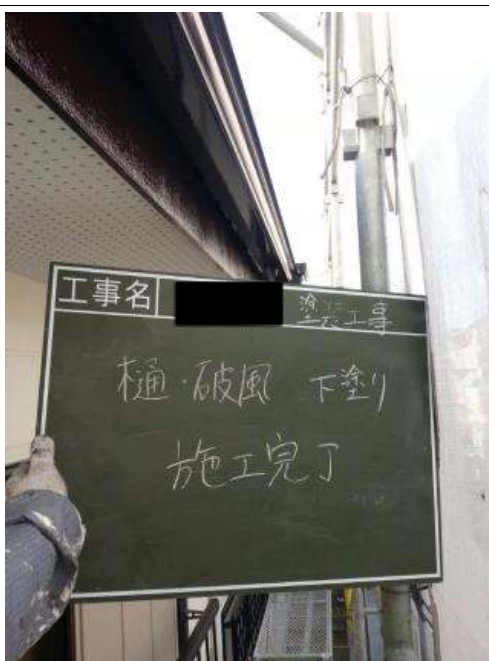 工事名 塗装工事
樋・破風 下塗り
施工完了